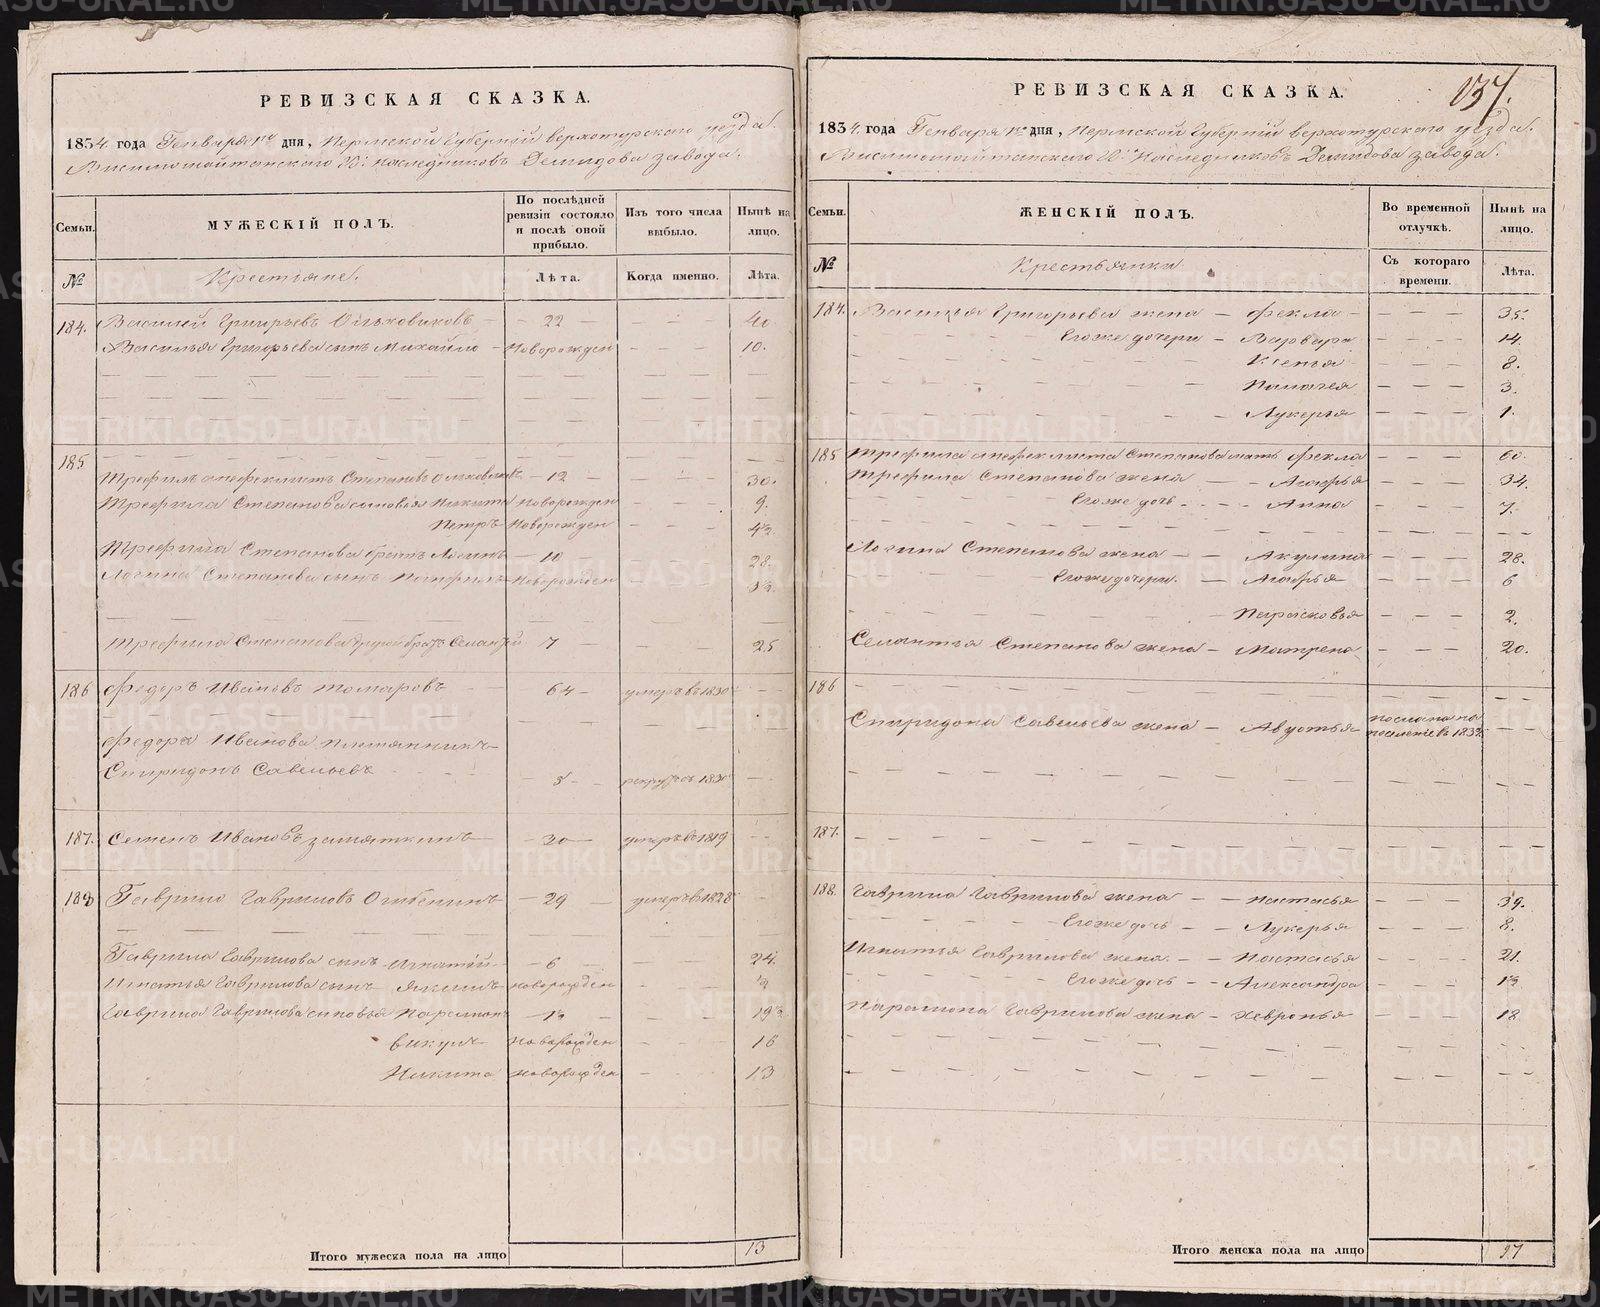 РЕВИЗСКАЯ СКАЗКА.
1834. года Генваря 1го дня, Пермской Губернiи верхотурскаго уезда.
Висимошайтанскаго Гг: наследниковъ Демидова завода.
Семьи.
МУЖЕСКIЙ ПОЛЪ.
По послѣдней ревизiи состояло и послѣ оной прибыло.
Изъ того числа выбыло.
Нынѣ на лицо.
№
Крестьяне.
Лѣта.
Когда именно.
Лѣта.
184. Василей Григорьевъ Ольховиковъ — 22 — 40.
Василья Григорьева сынъ Михайло — Новорожден — 10.
185
Трефилъ Степановъ — 12 — 30.
Трефила Степанова сыновья Никита Новорожден 9.
Петръ Новорожден
Трефила Степанова братъ Логинъ — 10 — 28.
Логина Степанова сынъ Памфилъ — Новорожден
Трефила Степанова другой братъ 7 — 25
186 Федоръ Ивановъ Комаровъ — 64 — умеръ въ 1830
Федора Иванова племянникъ
Спиридонъ Савельевъ — 8 —
187. Семенъ Ивановъ Замяткинъ — 30 — умеръ въ 1819
188 Гаврило Гавриловъ — 29 — умеръ въ 1828
Гаврила Гаврилова сынъ Игнатей — 6 — 24.
Игнатья Гаврилова сынъ Новорожден
Гаврила Гаврилова сыновья Парамонъ
Викулъ Новорожден — 16
Никита Новорожден — 13
Итого мужеска пола на лицо 13
137.
РЕВИЗСКАЯ СКАЗКА.
1834. года Генваря 1го дня, Пермской Губернiи верхотурскаго уезда.
Висимошайтанскаго Гг: Наследниковъ Демидова завода.
Семьи.
ЖЕНСКIЙ ПОЛЪ.
Во временной отлучкѣ.
Нынѣ на лицо.
№
Крестьянки
Съ котораго времени.
Лѣта.
184. Василья Григорьева жена — Фекла — 35.
Его же дочери — Варвара 14.
Ксенья 8.
Палагея 3.
Лукерья 1.
185 Степанова мать Фекла 60.
Трефила Степанова жена — Агафья 34.
Его же дочь — Анна 7.
Логина Степанова жена — Акулина 28.
Его же дочери. — Агафья 6
Парасковья 2.
Степанова жена — Матрена 20.
186
Спиридона Савельева жена — Августья послана на поселенiе въ 1832
187.
188. Гаврила Гаврилова жена — Настасья 39.
Его же дочь — Лукерья 8.
Игнатья Гаврилова жена. — Настасья 21.
Его же дочь — Александра
Парамона Гаврилова жена — Хевронья 18
Итого женска пола на лицо 17
METRIKI.GASO-URAL.RU